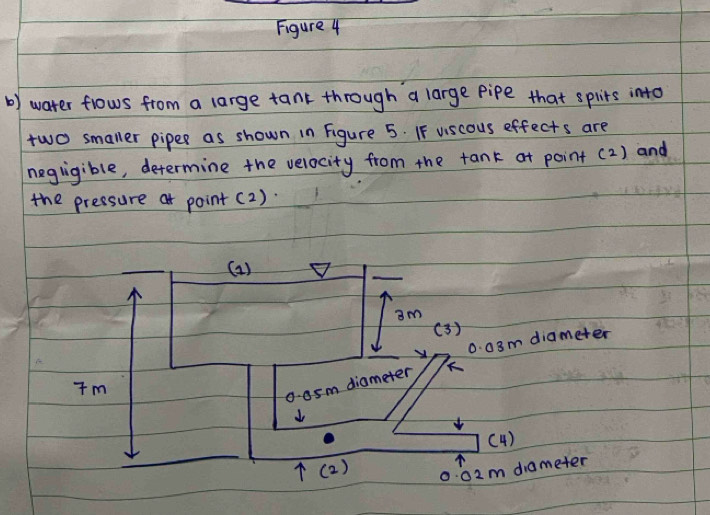 Figure 4
b) water flows from a large tank through a large pipe that splits into
two smaller pipes as shown in Figure 5. IF viscous effects are
negligible, determine the velocity from the tank at point (2) and
the pressure at point (2).
(1)
3m
(3)
0.03m diameter
7m
0.05m diameter
(4)
(2)
0.02m diameter